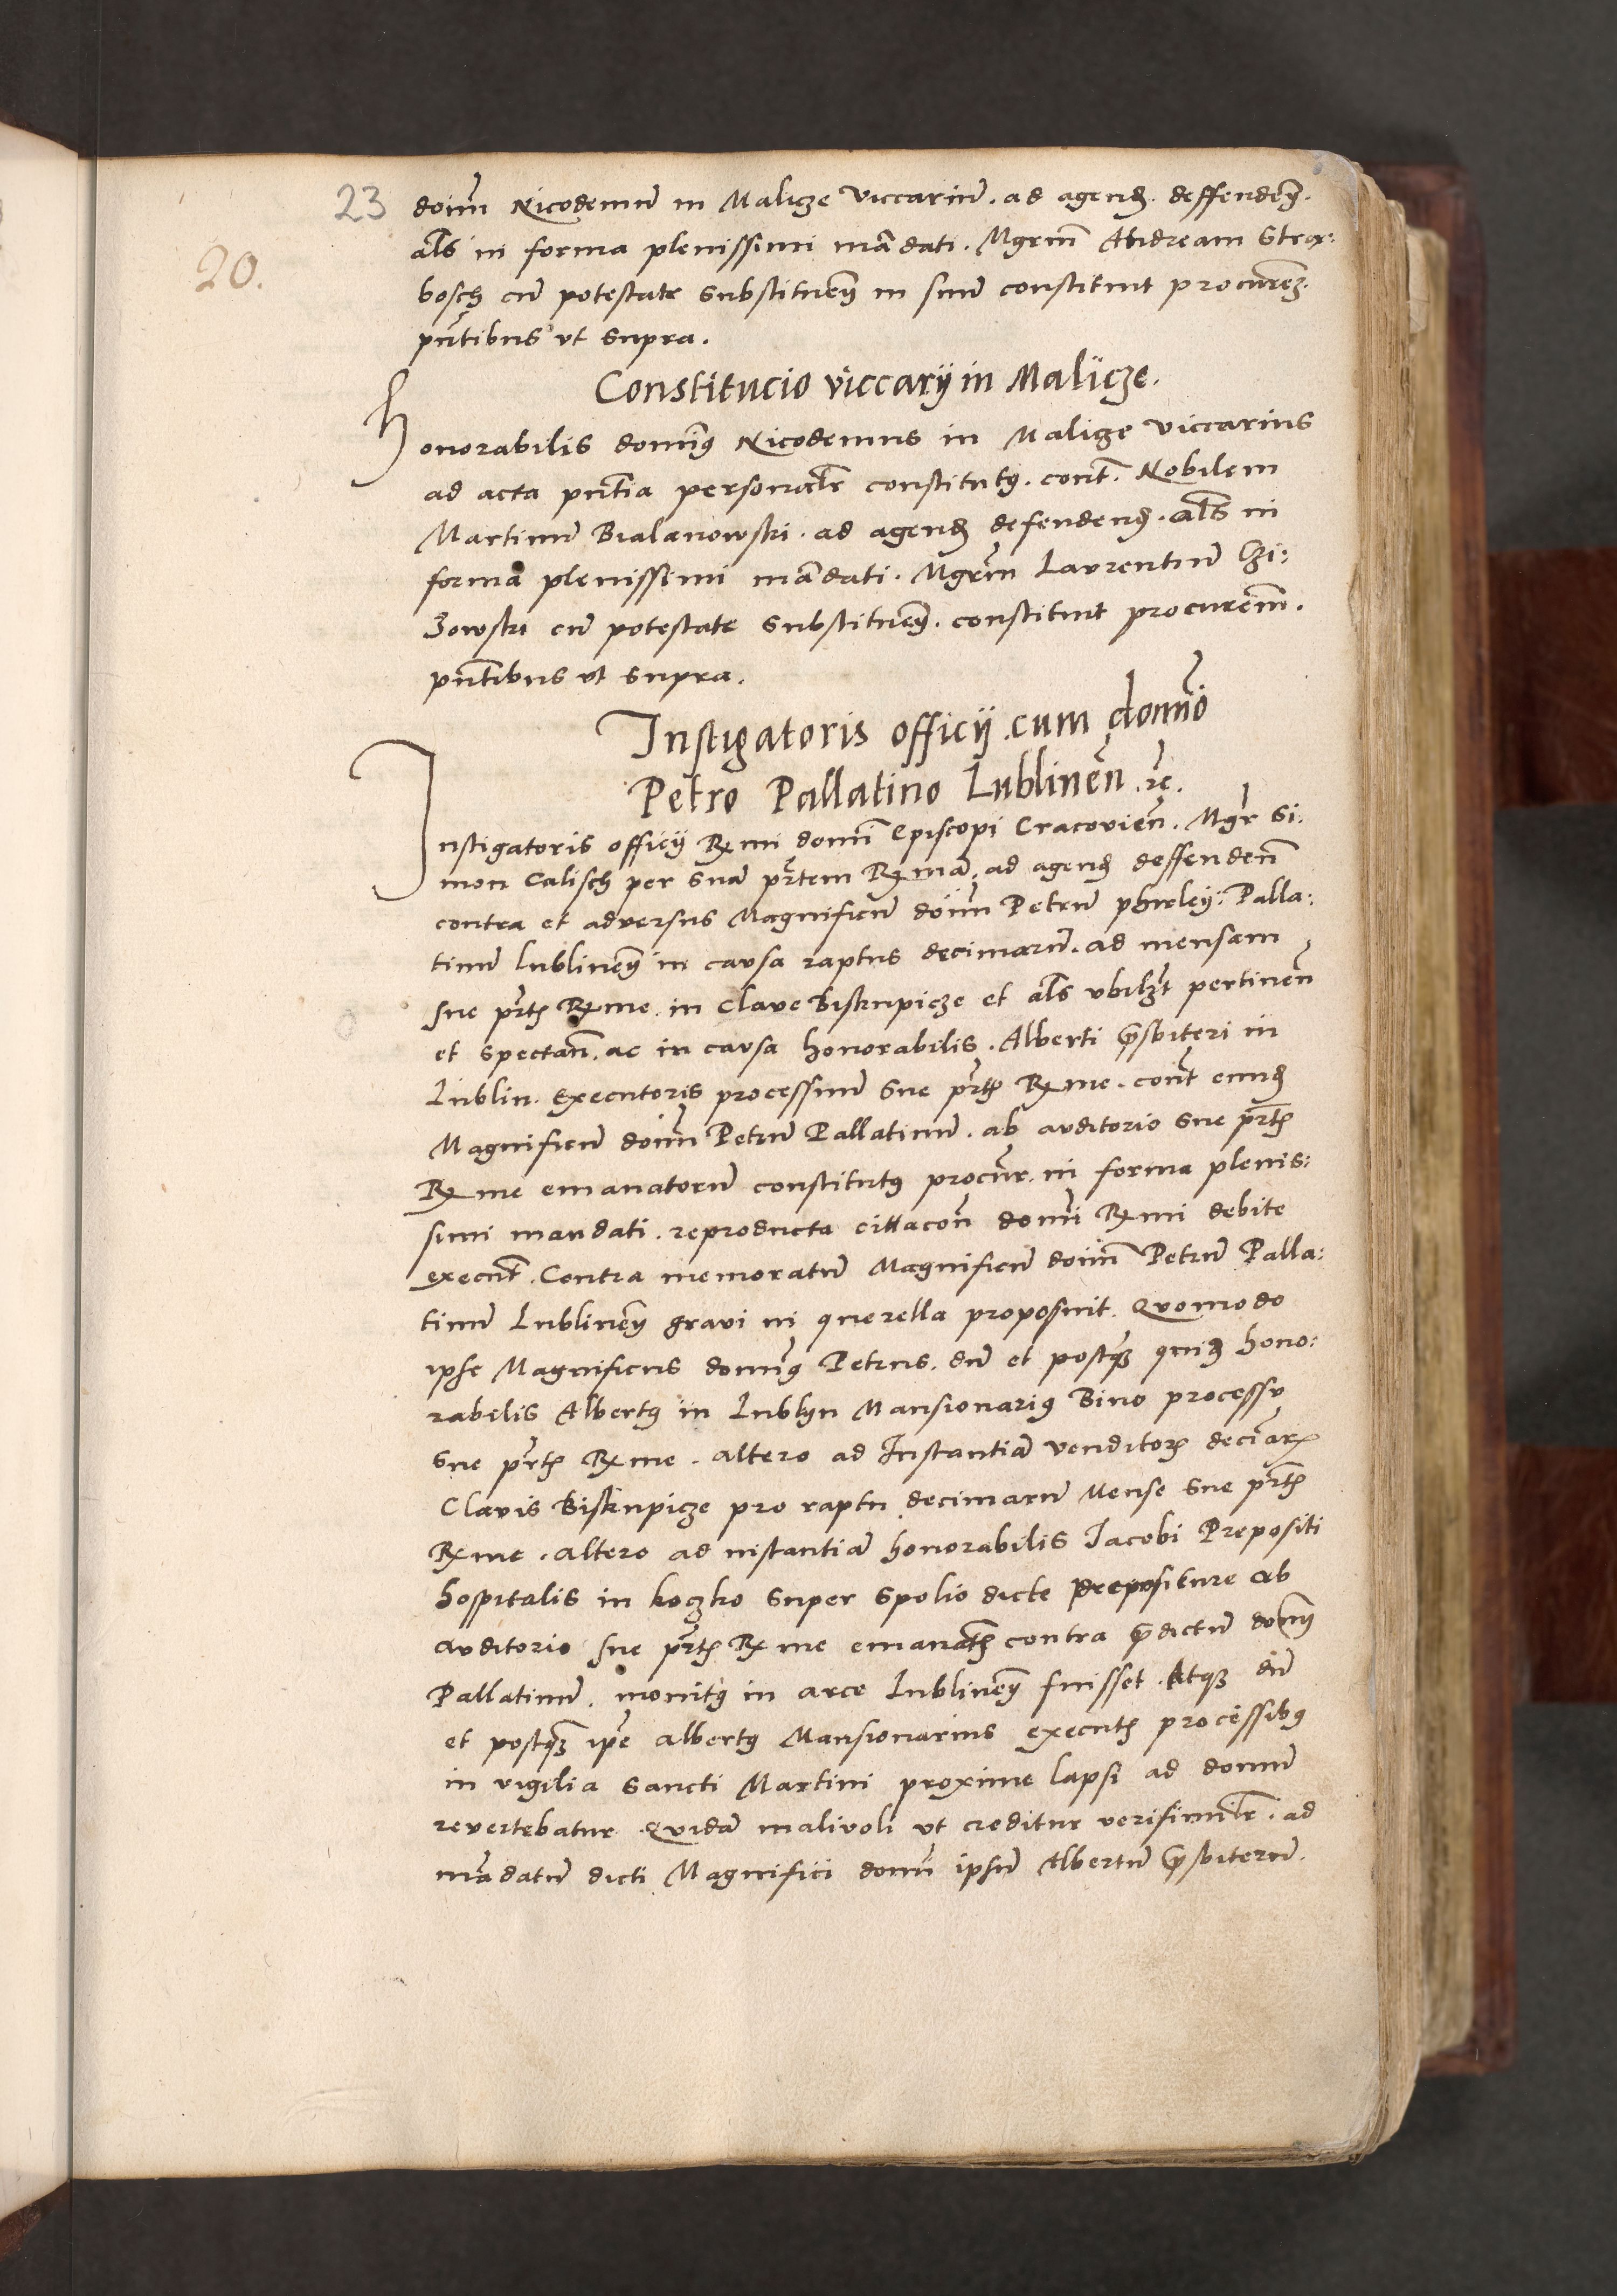 23
20.
doim̄ Nicodemū in Malicze viccariū. ad agend. deffendeñ.
als in forma plenissimi mādati. Mgrm̄ Andream Strox:
bosch cū potestate substitueñ in suū constituit procureñ.
pn̄tibus vt supra.
Constitucio viccarÿ in Malicze.
Honorabilis domin9 Nicodemus in Malicze viccarius
ad acta pn̄tia personalr constitut9. cont. Nobilem
Martinū Bialanowski. ad agend defendend. als in
forma plenissimi mādati. Mgrm̄ Laurentiū Czi:
zowski cū potestate substitueñ. constituit procurem̄.
pn̄tibus vt supra.
Instigatoris officÿ cum domīo
Petro Pallatino Lublineñ. rē.
Instigatoris officÿ Rmi domī Episcopi Cracovieñ. Mgr Si:
mon Calisch per suā pr̄tem Rmā. ad agend deffendeñ
contra et adversus Magnificū doim̄ Petrū phirleÿ. Palla:
tinū Lublineñ in causa raptus decimarū. ad mensam
sue pr̄tis Rme. in Clave Biskupicze et als vbilzt pertineñ
et spectañ. ac in causa honorabilis. Alberti p̄sbiteri in
Lublin. executoris processuū sue pr̄tis Rme. cont eund
Magnificū doim̄ Petrū Pallatinū. ab auditorio sue pr̄tis
Rme emanatorū constitut9 procur. in forma plenis:
simi mandati. reproducta citacoñ domī Rmi debite
execut. Contra memoratū Magnificū doim̄ Petrū Palla:
tinū Lublineñ gravi in querella proposuit. Quomodo
ipse Magnificus domin9 Petrus. dū et postqz quid hono:
rabilis Albert9 in Lublyn Mansionari9 Bino processu
sue pr̄tis Rme. altero ad Instantiā venditor decīar
Clavis Biskupicze pro raptu decimarū Mense sue pr̄tis
Rme. altero ad instantiā honorabilis Jacobi Prepositi
hospitalis in koczko super spolio dicte prepositure ab
auditorio sue pr̄tis Rme emanatis contra p̄dictū dom̄
Pallatinū. monit9 in arce Lublineñ fuisset. Atqz dū
et postqz ip̄e albert9 Mansionarius executis processib9
in vigilia sancti Martini proxime lapsi ad domū
revertebatur. Quidā malivoli vt creditur verisimilr. ad
mādatū dicti Magnifici domī ipsū Albertū p̄sbiterū.